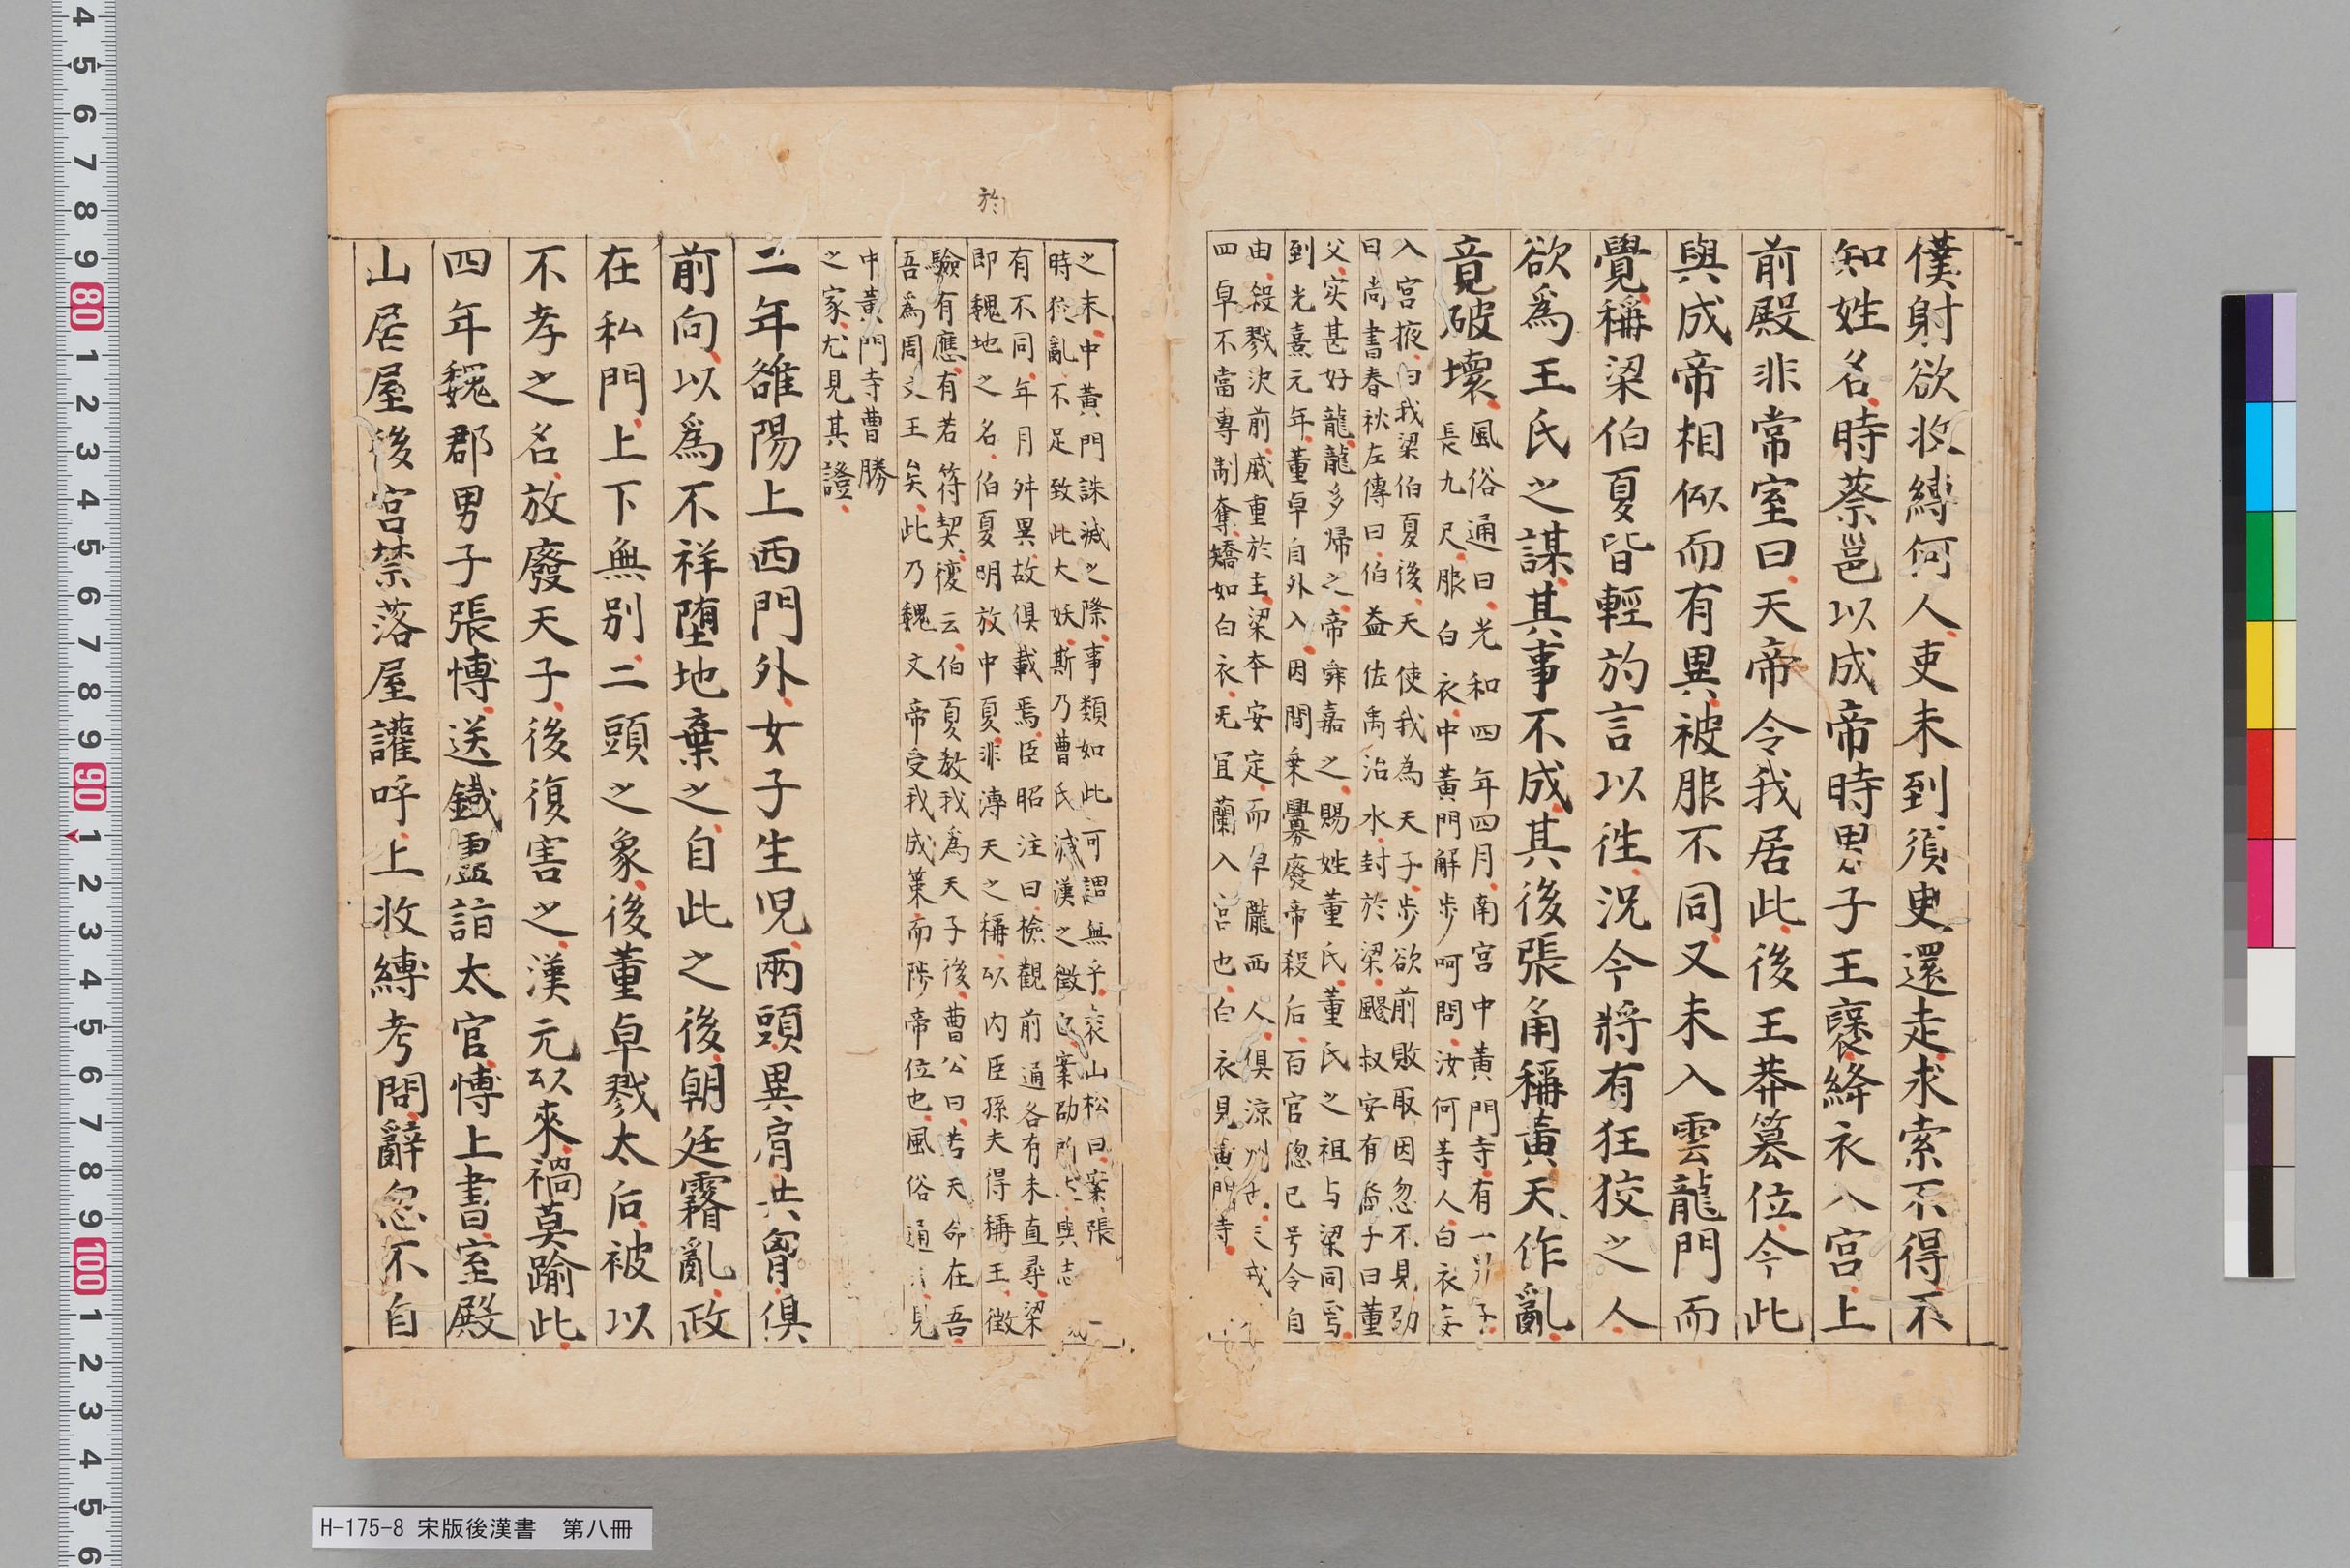 僕射欲收縛何人吏未到須臾還走求索不得不
知姓名時蔡邕以成帝時男子王襃絳衣入宮上
前殿非常室曰天帝令我居此後王莽篡位今此
與成帝相似而有異被服不同又未入雲龍門而
覺稱梁伯夏皆輕於言以往況今將有狂狡之人
欲爲王氏之謀其事不成其後張角稱黃天作亂
竟破壞
風俗通曰光和四年四月南宮中黃門寺有一男子
長九尺服白衣中黃門解步呵問汝何等人白衣妄
入宮掖曰我梁伯夏後天使我為天子步欲前收取因忽不見劭
曰尚書春秋左傳曰伯益佐禹治水封於梁飂叔安有裔子曰董
父实甚好龍龍多歸之帝舜嘉之賜姓董氏董氏之祖与梁同焉
到光熹元年董卓自外入因間乗釁廢帝殺后百官惣己号令自
由殺戮決前威重於主梁本安定而卓隴西人俱涼州也天戒
四卓不當專制奪矯如白衣无宜蘭入宮也白衣見黃門寺
之末中黃門誅滅之際事類如此可謂無乎袁山松曰案張
時狡亂不足致此大妖斯乃曹氏滅漢之徵也案劭所述與志
有不同年月舛異故俱載焉臣昭注曰檢觀前通各有未直尋梁
即魏地之名伯夏明放中夏非溥天之稱以内臣孫夫得稱王徵
驗有應有若符契復云伯夏教我爲天子後曹公曰若天命在吾
吾爲周文王矣此乃魏文帝受我成策而陟帝位也風俗通見
中黃門寺曹勝
之家尤見其證
二年雒陽上西門外女子生兒兩頭異肩共胷俱
前向以爲不祥墮地棄之自此之後朝廷霿亂政
在私門上下無別二頭之象後董卓戮太后被以
不孝之名放廢天子後復害之漢元以來禍莫踰此
四年魏郡男子張博送鐵盧詣太官博上書室殿
山居屋後宮禁落屋讙呼上收縛考問辭忽不自
於
H-175-8 宋版後漢書　第八冊